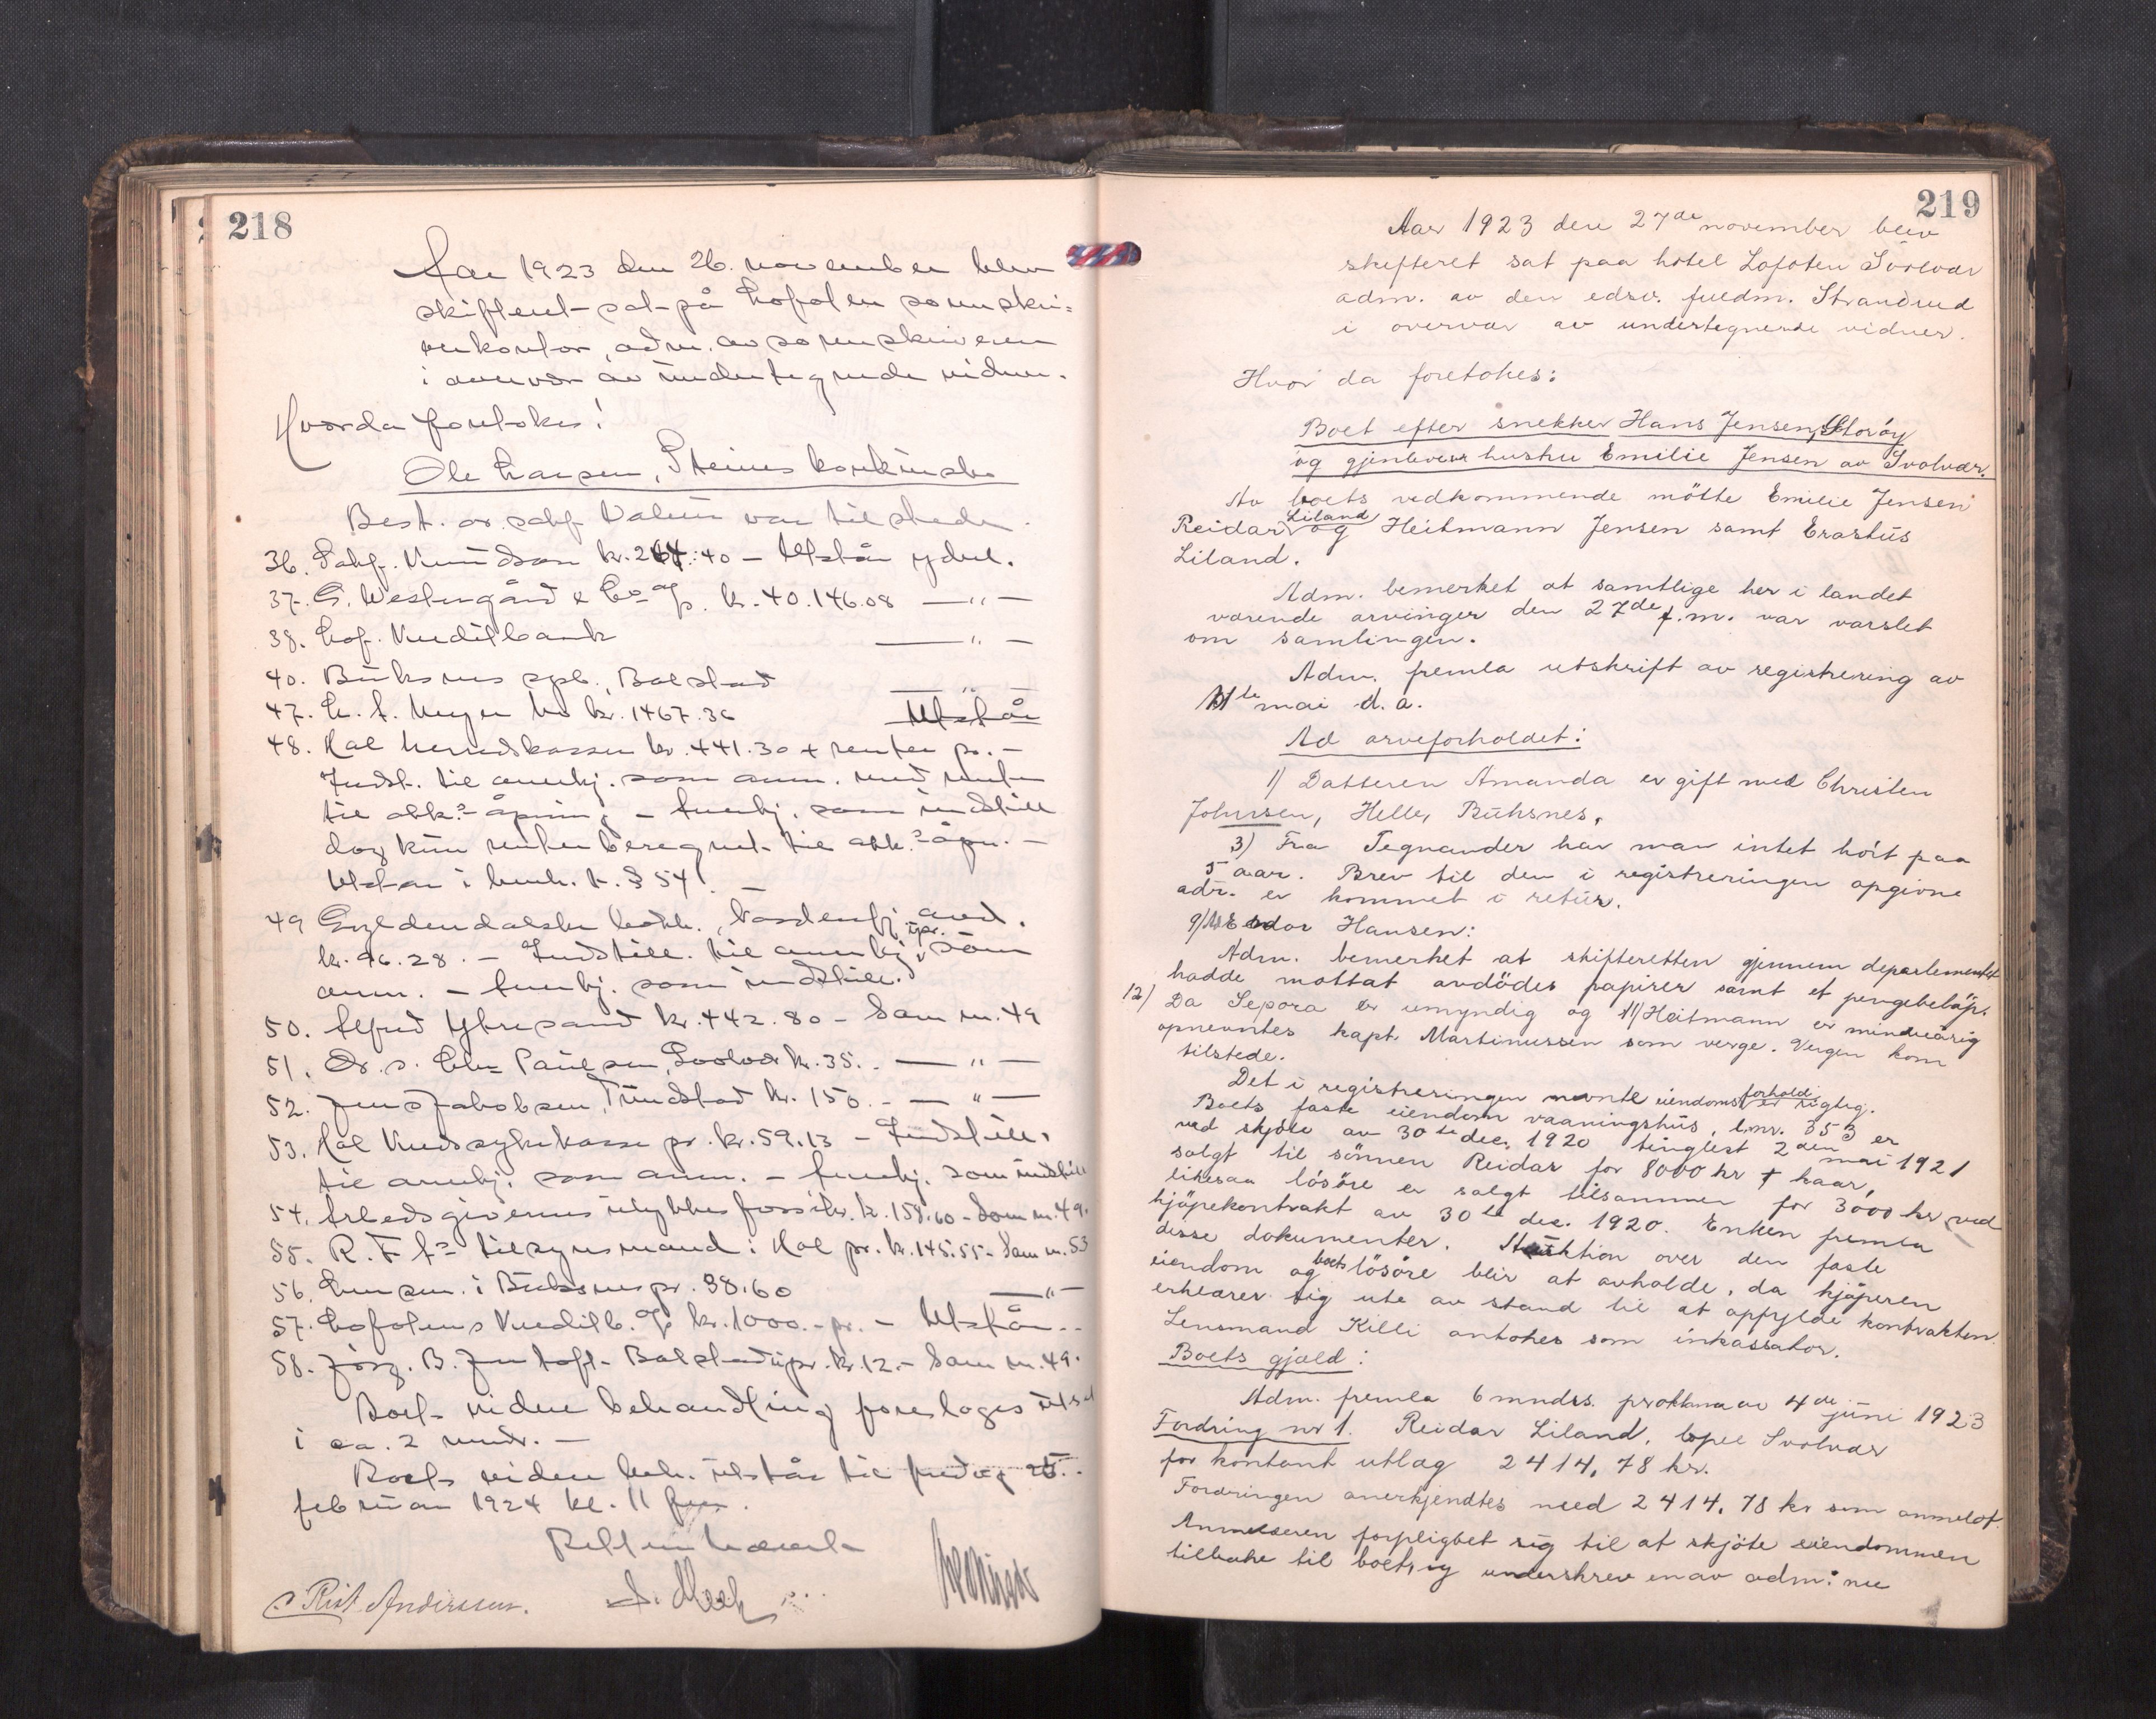 218
Aar 1923 den 26. november blev
skifteret sat på Lofoten sorenskri=
verkontor, adm. av sorenskriveren
i overvær av undertegnede vidner.
Hvorda foretokes:
Ole Larsen, Steines konkursbo
Best. or. sakf. var tilstede.
36. Sakf. Knudsen kr. 264.40 – Utstår yderl.
37. G. Westergård & Co A/S. kr. 40.146.08 — " —
38. Lof. Kreditbank — " —
40. Buksnes spb., Bolstad — " —
47. L. A. Meyer Mo kr. 1467.36 Utstår
48. Hol herredskasse kr. 441.30 + renter pr. –
Indst. til anerkj. som anm. med renter
til okk.s åpning – Anerkj. som indstill
dog kun renter beregnet til okk.s åpn. –
Utstår i henh. k. § 54. –
49 Gyldendalske bokh., Nordenfj. avd.
kr. 96.28. – Indstill. til anerkj. upr. som
anm. – Anerkj. som indstill.
50. Alfred Ytresand kr. 442.80 – Som nr. 49
51. Dr. Paulsen, Svolvær kr. 35. — " —
52. Jens Jakobsen, Tindstad kr. 150. – — " —
53. Hol Kredssykekasse pr. kr. 59.13 – Indstill.
til anerkj. som anm. – Anerkj. som indstill
54. Arbeidsgivernes ulykkesforsikr. kr. 158.60 – Som nr. 49.
55. R. F. A.s tilsynsmand i Hol pr. kr. 145.55 – Som nr. 53
56. Lensm. i Buksnes pr. 38.60 — " —
57. Lofotens Kreditb. A/S kr. 1000.– pr. – Utstår. –
58. Jørg. B. Jentoft Bolstad upr. kr. 12. – Som nr. 49.
Boets videre behandling foreslåges utsat
i ca. 2 mndr. –
Boets videre beh. utstår til fredag 25.
februar 1924 kl. 11 fm.
Retten hævet
Rist. Anderssen.
219
Aar 1923 den 27de november blev
skifteret sat paa hotel Lofoten Svolvær
adm. av den edsv. fuldm. Strandrud
i overvær av undertegnende vidner.
Hvor da foretokes:
Boet efter snekker Hans Jensen, Storøy
og gjenlevende hustru Emilie Jensen av Svolvær.
Av boets vedkommende møtte Emilie Jensen
Reidar Liland og Heitmann Jensen samt Erastus
Liland.
Adm. bemerket at samtlige her i landet
værende arvinger den 27de f.m. var varslet
om samlingen.
Adm. fremla utskrift av registrering av
11te mai d. a.
Ad arveforholdet:
1) Datteren Amanda er gift med Christen
Johnsen, Helle, Buksnes.
3) Fra Tegnander har man intet hørt paa
5 aar. Brev til den i registreringen opgivne
adr. er kommet i retur.
9/ Edor Hansen:
Adm. bemerket at skifteretten gjennem departementet
hadde mottat avdødes papirer samt et pengebeløp.
12) Da Sepora er umyndig og 11/ Heitmann er mindreårig
opnevntes kapt. Martinussen som verge. Vergen kom
tilstede.
Det i registreringen nevnte eiendomsforhold er rigtig.
Boets faste eiendom vaaningshus, bnr. 353 er
ved skjøte av 30te dec. 1920 tinglest 2den mai 1921
solgt til sønnen Reidar for 8000 kr + kaar,
likesaa løsøre er solgt tilsammen for 3000 kr ved
kjøpekontrakt av 30te dec. 1920. Enken fremla
disse dokumenter. Auktion over den faste
eiendom og boets løsøre blir at avholde, da kjøperen
erklærer sig ute av stand til at opfylde kontrakten.
Lensmand Killi antokes som inkassator.
Boets gjæld:
Adm. fremla 6 mndrs. proklama av 4de juni 1923
Fordring nr 1. Reidar Liland, Svolvær
for kontant utlæg 2414,78 kr.
Fordringen anerkjendtes med 2414,78 kr som anmeldt.
Anmelderen forpligtet sig til at skjøte eiendommen
tilbake til boet, og underskrev en av adm. nu